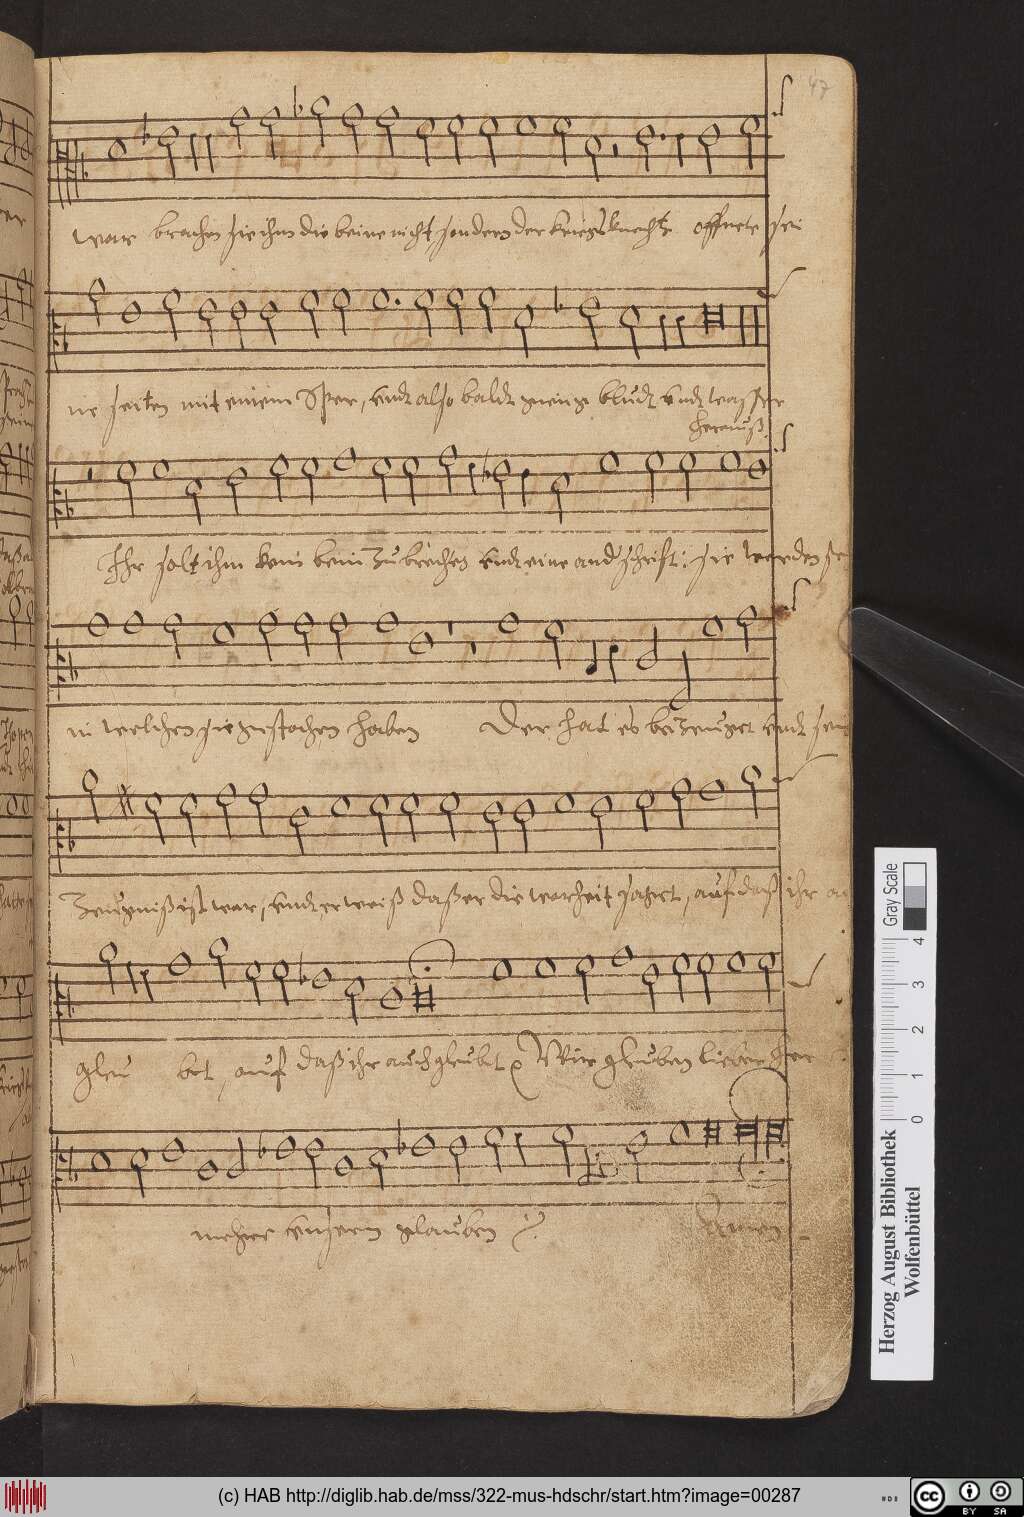 47
war brachen sie ihm die beine nicht, sondern der kriegsknecht offnete sei
ne seiten mit einem Sper, undt also baldt gieng bludt undt wasser
herauß.
Ihr solt ihm kein bein zubrechen undt eine and schrift: sie werden se
in welchen sie gestochen haben Der hat es bezeuget undt sein
Zeugniß ist war, undt er weiß daß er die warheit saget, auf daß ihr au
gleu bet, auf daß ihr auch gleubet Wir gleuben lieber Her
mehre unsern glauben Amen
Gray Scale
0 1 2 3 4
Herzog August Bibliothek
Wolfenbüttel
(c) HAB http://diglib.hab.de/mss/322-mus-hdschr/start.htm?image=00287
cc BY SA